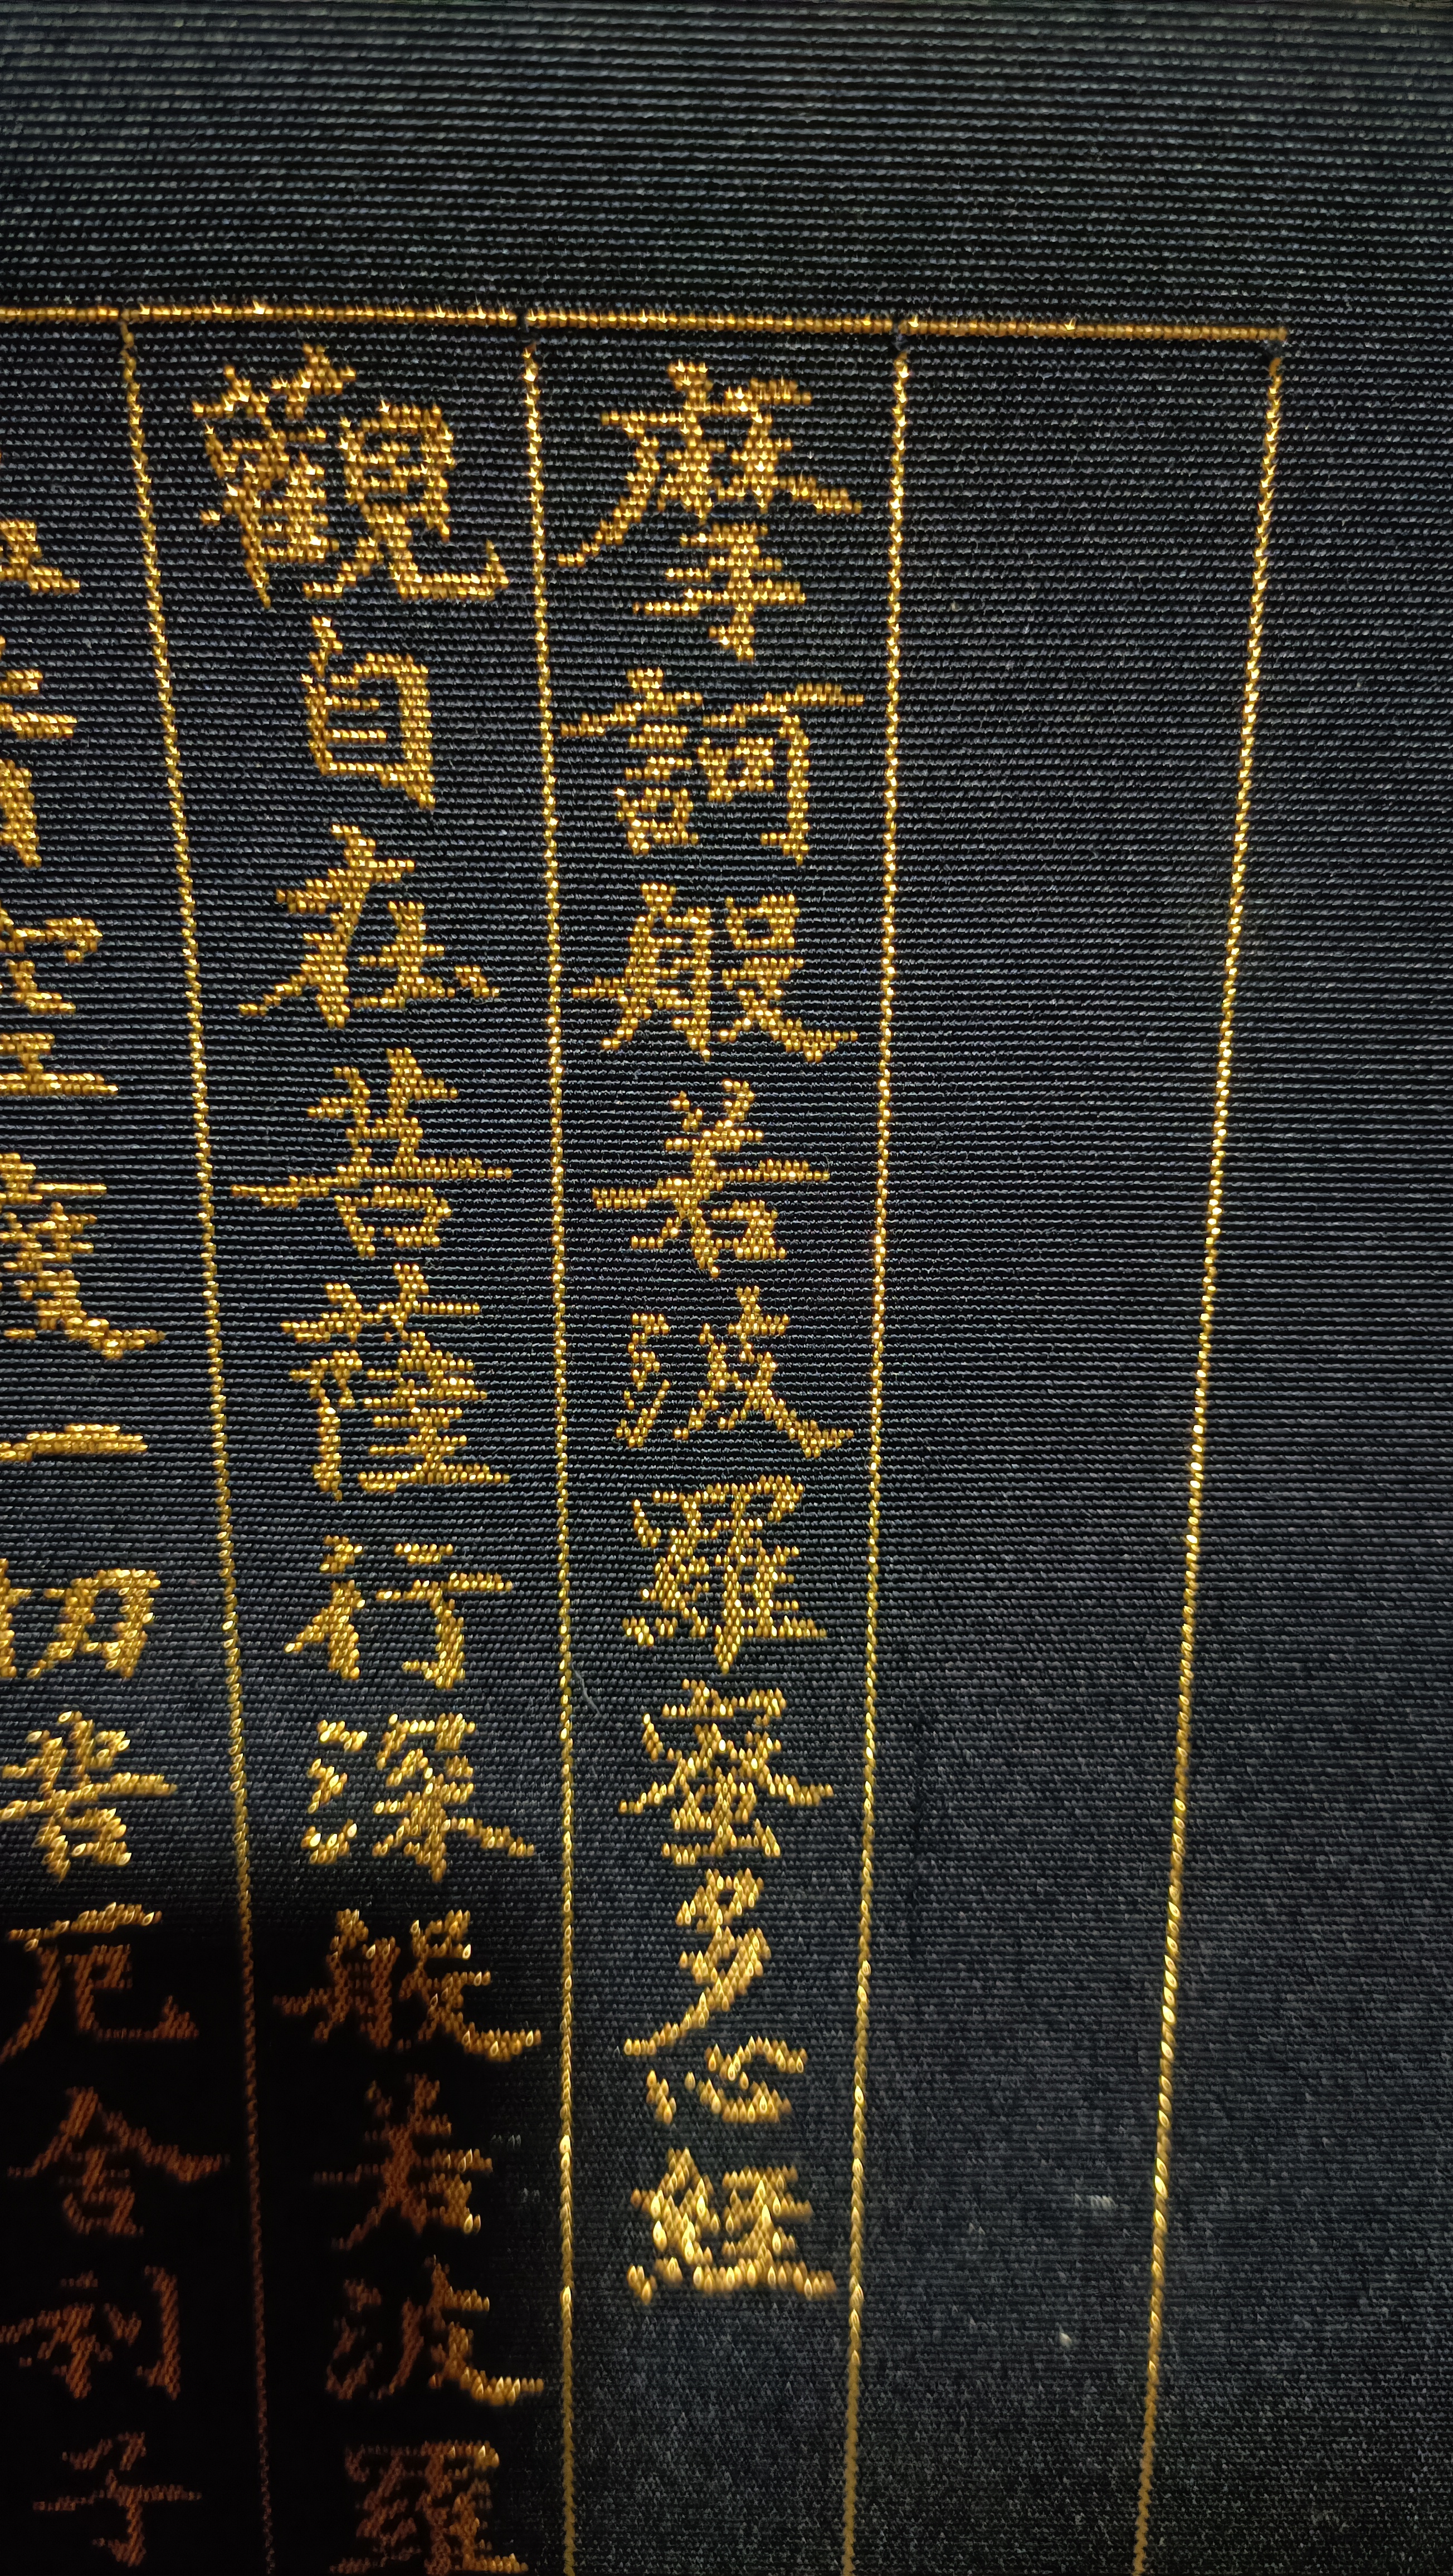 摩訶般若波羅蜜多心經
觀自在菩薩行深般若波羅
皆空度一切苦厄舍利子